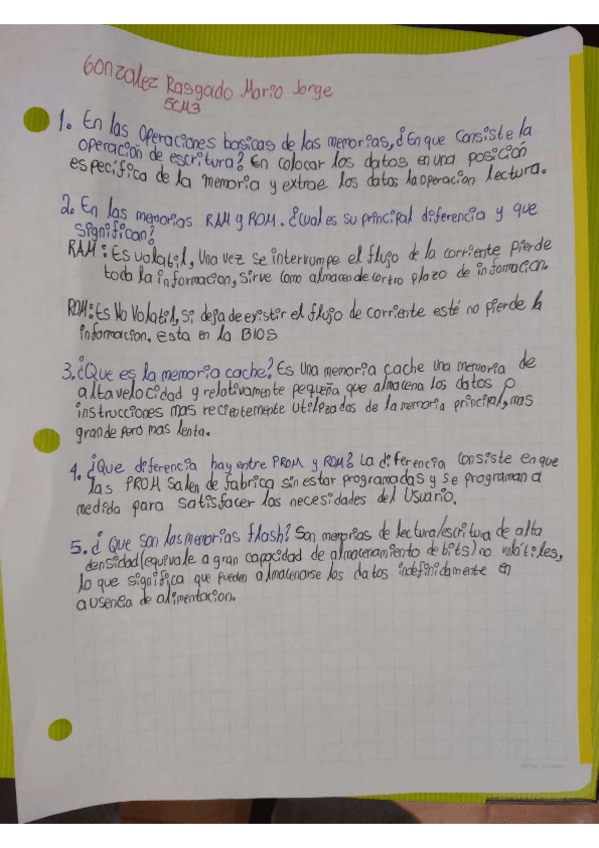 Gonzalez Rasgado Mario Jorge
5CM3
1. En las Operaciones basicas de las memorias, ¿En que consiste la
operación de escritura? En colocar los datos en una posición
especifica de la memoria y extrae los datos la operacion lectura.
2. En las memorias RAM y ROM. ¿Cual es su principal diferencia y que
significan?
RAM: Es volatil, Una vez se interrumpe el flujo de la corriente pierde
toda la informacion, sirve como almacen de corto plazo de informacion.
ROM: Es No Volatil, Si deja de existir el flujo de corriente esté no pierde la
informacion. esta en la BIOS
3. ¿Que es la memoria cache? Es Una memoria cache una memoria de
alta velocidad y relativamente pequeña que almacena los datos o
instrucciones mas recientemente utilizados de la memoria principal, mas
grande pero mas lenta.
4. ¿Que diferencia hay entre PROM y ROM? La diferencia consiste en que
las PROM salen de fabrica sin estar programadas y se programan a
medida para satisfacer las necesidades del Usuario.
5. ¿Que son las memorias flash? Son memorias de lectura/escritura de alta
densidad (equivale a gran capacidad de almacenamiento de bits) no volátiles,
lo que significa que pueden almacenarse los datos indefinidamente en
ausencia de alimentacion.